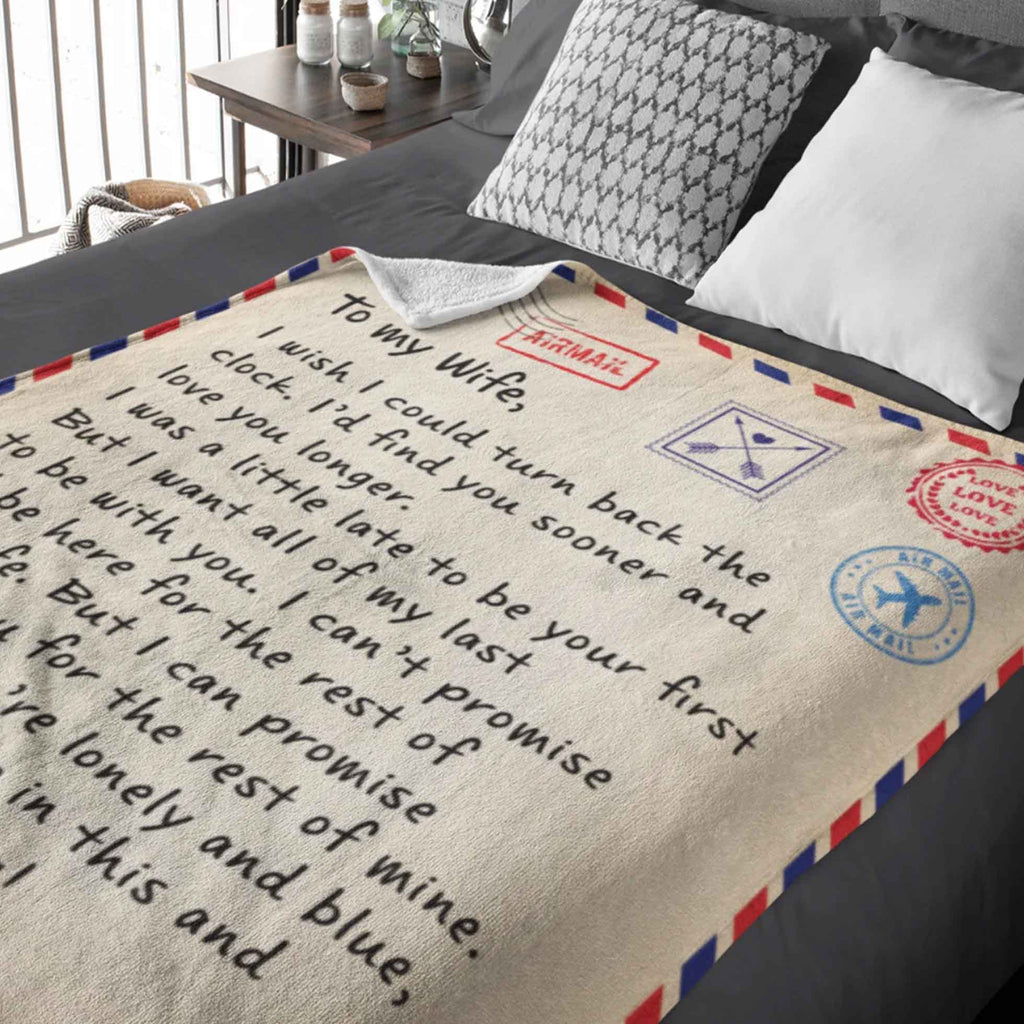 To my Wife,
I wish I could turn back the
clock. I'd find you sooner and
love you longer.
I was a little late to be your first
But I want all of my last
to be with you. I can't promise
be here for the rest of
But I can promise
for the rest of mine.
lonely and blue,
in this and
AIRMAIL
LOVE
LOVE
LOVE
AIR MAIL
AIR MAIL